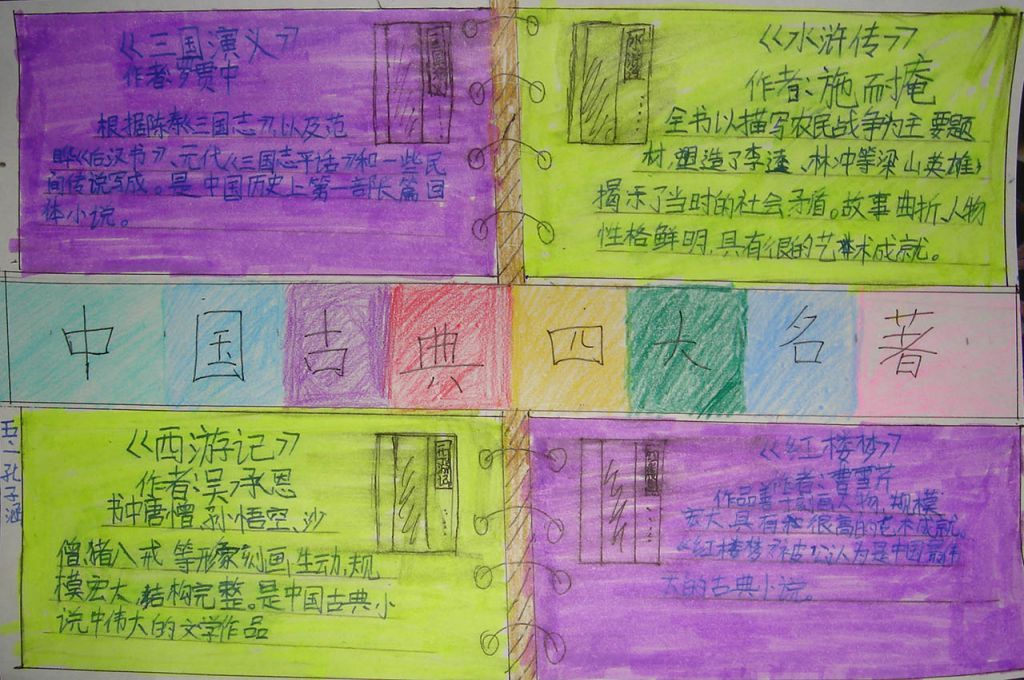 《三国演义》
作者:罗贯中
根据陈寿《三国志》,以及范
晔《后汉书》、元代《三国志平话》和一些民
间传说写成。是中国历史上第一部长篇回
体小说。
《水浒传》
作者:施耐庵
全书以描写农民战争为主要题
材,塑造了李逵、林冲等梁山英雄,
揭示了当时的社会矛盾。故事曲折、人物
性格鲜明,具有很的艺术成就。
水浒
中国古典四大名著
五.二孔子涵
《西游记》
作者:吴承恩
书中唐憎、孙悟空、沙
僧、猪八戒等形象刻画生动,规
模宏大,结构完整。是中国古典小
说中伟大的文学作品
西游记
《红楼梦》
作者:曹雪芹
作品善于刻画人物,规模
宏大,具有很高的艺术成就。
《红楼梦》被公认为是中国最伟
大的古典小说。